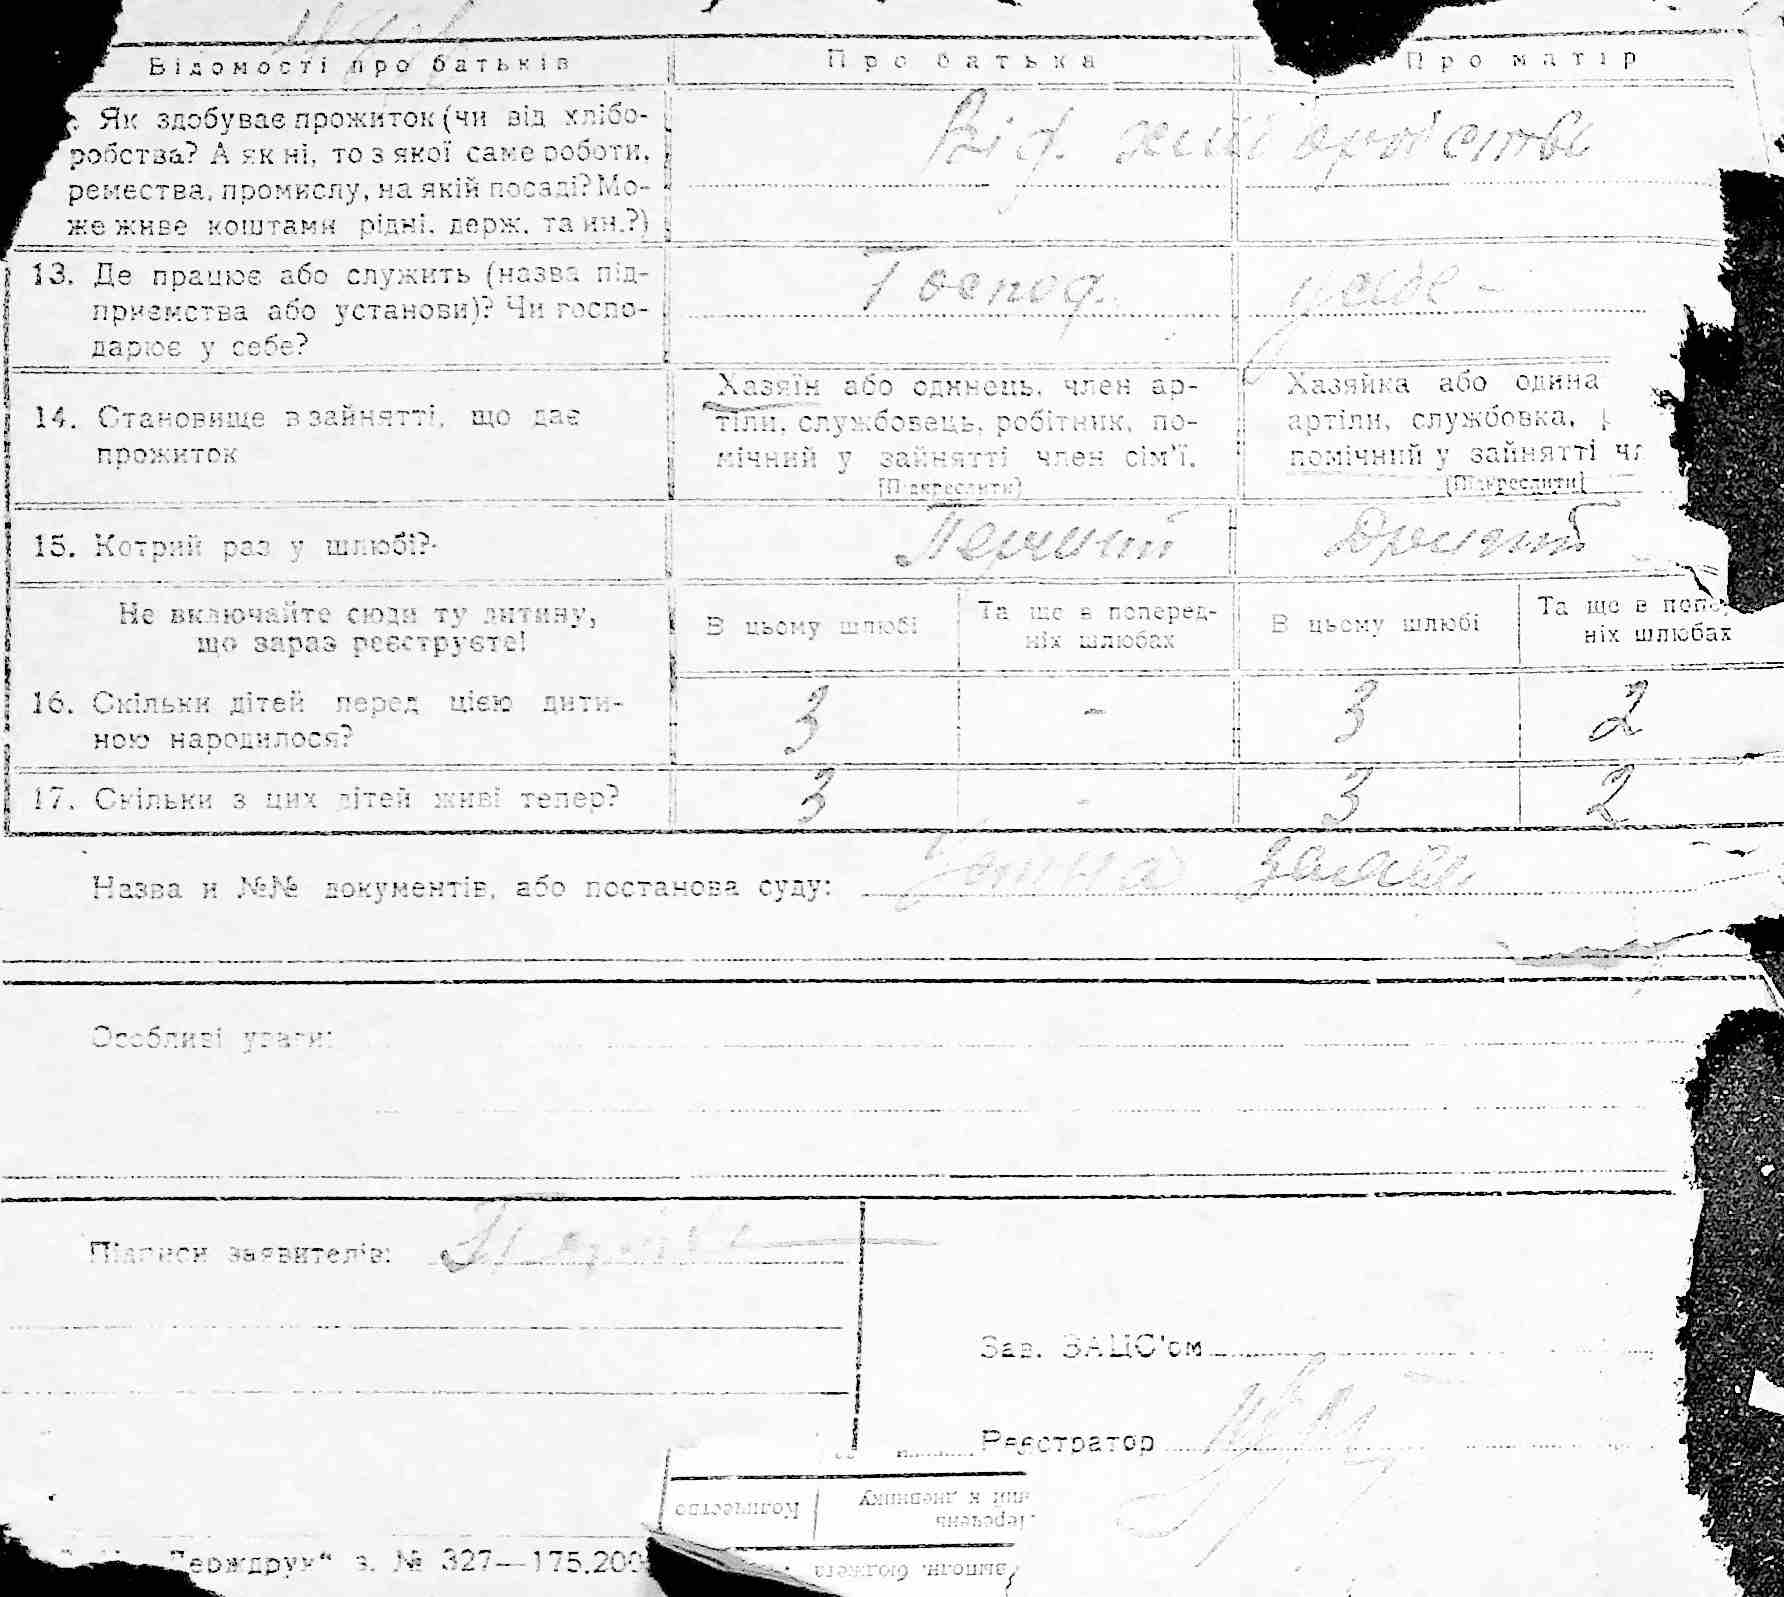 Відомості про батьків Про батька Про матір
Як здобуває прожиток (чи від хлібо-
робства? А як ні, то з якої саме роботи,
ремества, промислу, на якій посаді? Мо-
же живе коштами рідні, держ. та ин.?)
Від. хліборобства
13. Де працює або служить (назва під-
приємства або установи)? Чи госпо-
дарює у себе?
Господ. у себе -
14. Становище в зайнятті, що дає
прожиток
Хазяїн або одинець, член ар-
тіли, службовець, робітник, по-
мічний у зайнятті член сім'ї.
[Підкреслити]
Хазяйка або одина
артіли, службовка,
помічний у зайнятті чл
[Підкреслити]
15. Котрий раз у шлюбі? Перший Другий
Не включайте сюди ту дитину,
що зараз реєструєте!
В цьому шлюбі Та ще в поперед-
ніх шлюбах
В цьому шлюбі Та ще в попе
ніх шлюбах
16. Скільки дітей перед цією дити-
ною народилося?
3 - 3 2
17. Скільки з цих дітей живі тепер? 3 - 3 2
Назва и №№ документів, або постанова суду: Устна заява
Особливі уваги:
Підписи заявителів:
Зав. ЗАЦС'ом
Реєстратор
Количество
ний к дневнику
Перечень
выполн. бюджета
Держдрук“ з. № 327—175.200